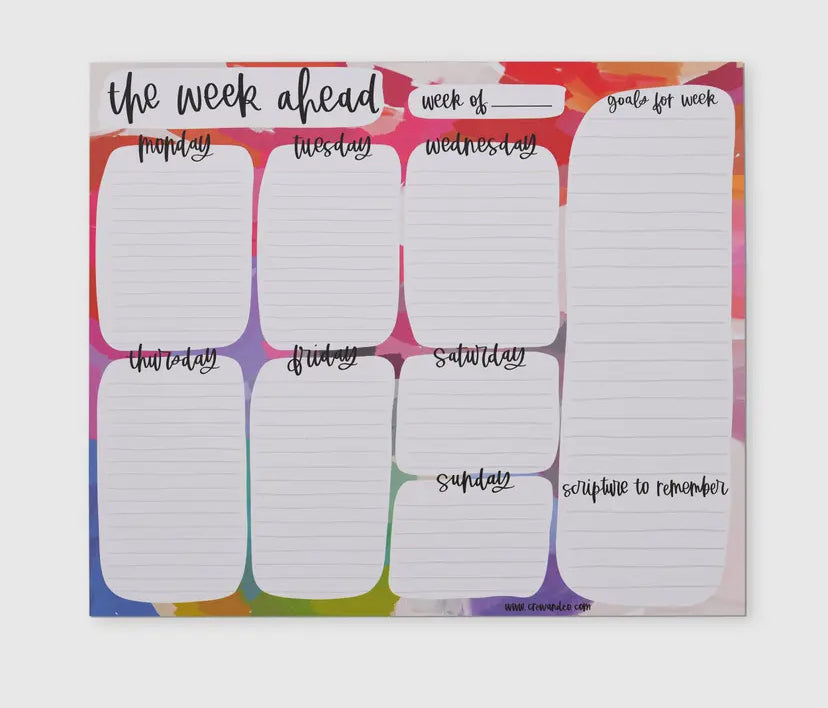 the week ahead
week of
goals for week
monday
tuesday
wednesday
thursday
friday
saturday
sunday
scripture to remember
www.crewandco.com